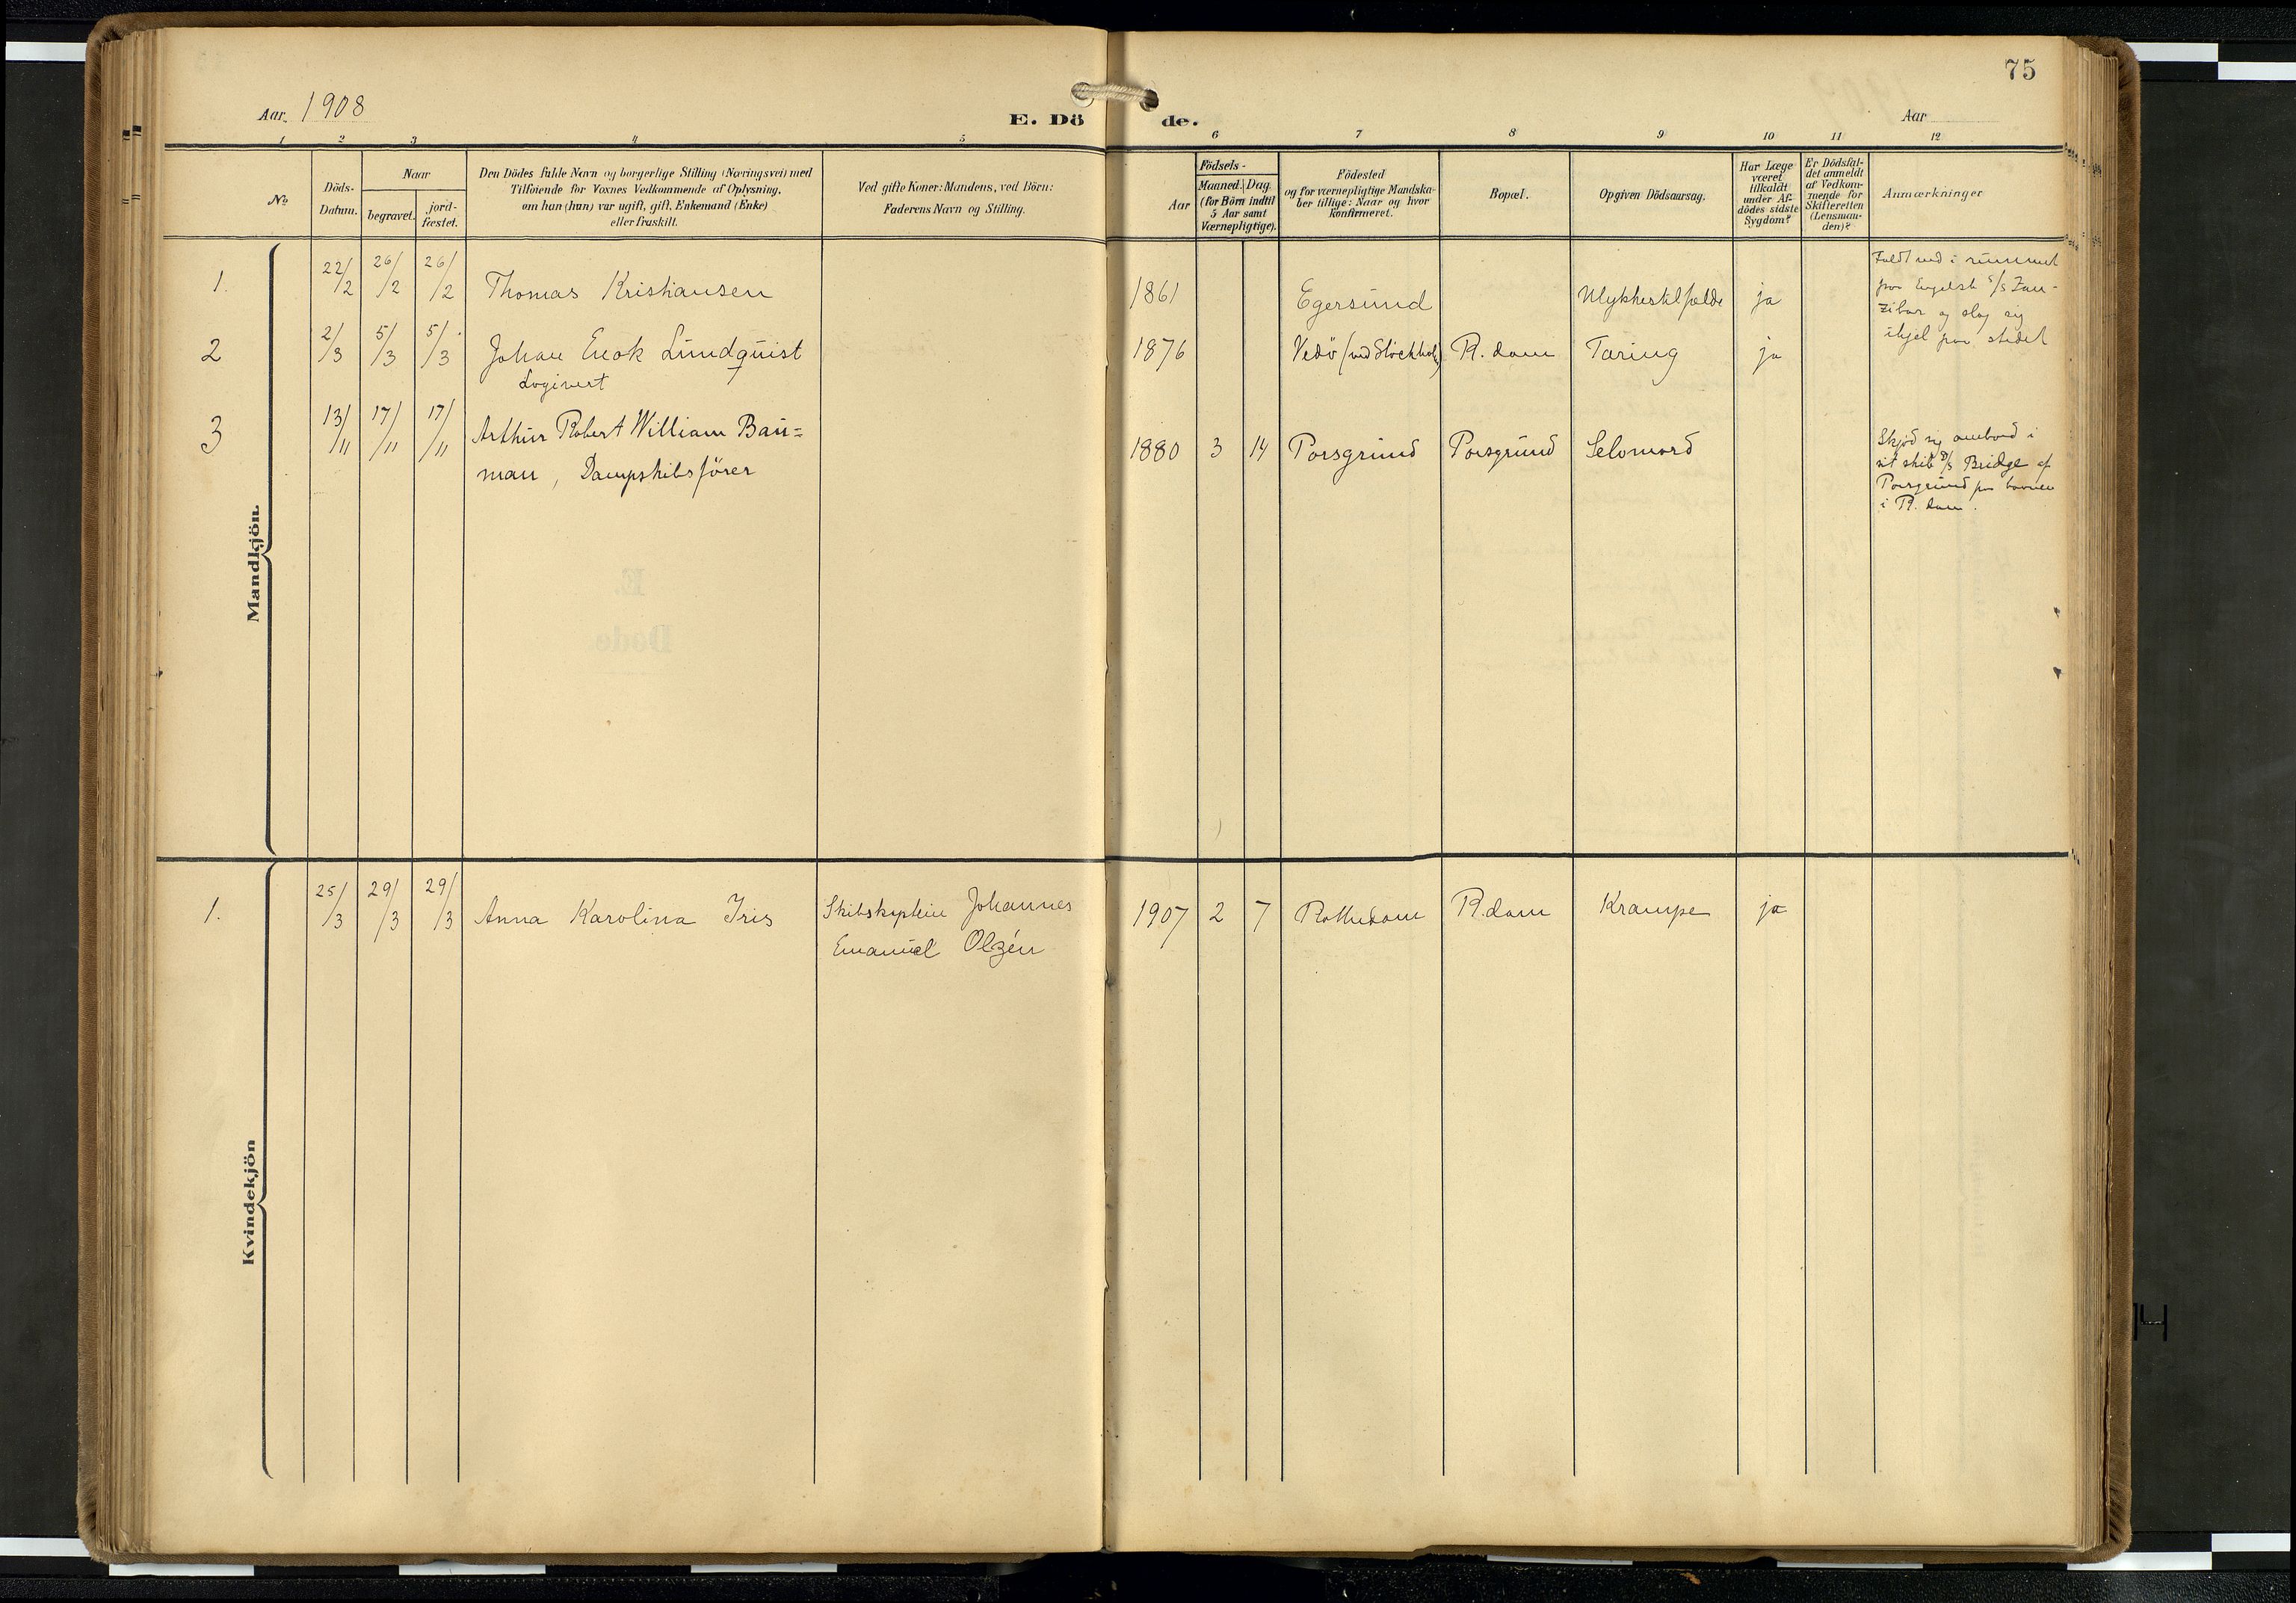 75
Aar 1908
E. Dö
de.
Aar
1 2 3 4 5
6 7 8 9 10 11 12
№
Döds-
Datum.
Naar
begravet.
jord-
fæstet.
Den Dödes fulde Navn og borgerlige Stilling (Næringsvei) med
Tilföiende for Voxnes Vedkommende af Oplysning,
om han (hun) var ugift, gift, Enkemand (Enke)
eller fraskilt.
Ved gifte Koner: Mandens, ved Börn:
Faderens Navn og Stilling.
Födsels-
Aar
Maaned. Dag.
(for Börn indtil
5 Aar samt
Værnepligtige).
Födested
og for værnepligtige Mandska-
ber tillige: Naar og hvor
konfirmeret.
Bopæl.
Opgiven Dödsaarsag.
Har Læge
været
tilkaldt
under Af-
dödes sidste
Sygdom?
Er Dödsfal-
det anmeldt
af Vedkom-
mende for
Skifteretten
(Lensman-
den)?
Anmærkninger
Mandkjön.
1. 22/2 26/2 26/2 Thomas Kristiansen 1861 Egersund Ulykkestilfælde ja
Faldt ned i rummet
paa Engelsk S/S Zan-
zibar og slog sig
ihjel paa stedet
2 2/3 5/3 5/3 Johan Enok Lundquist 1876 Vedö (ved Stockholm) R.dam Tæring ja
Logivert
3 13/11 17/11 17/11 Arthur Robert William Bau=
man, Dampskibsförer
1880 3 14 Porsgrund Porsgrund Selvmord
Skjöd sig ombord i
sit skib D/S Bridge af
Porsgrund paa havnen
i R.dam.
Kvindekjön
1. 25/3 29/3 29/3 Anna Karolina Iris Skibskaptein Johannes 1907 2 7 Rotterdam R.dam Krampe ja
Emanuel Olzén